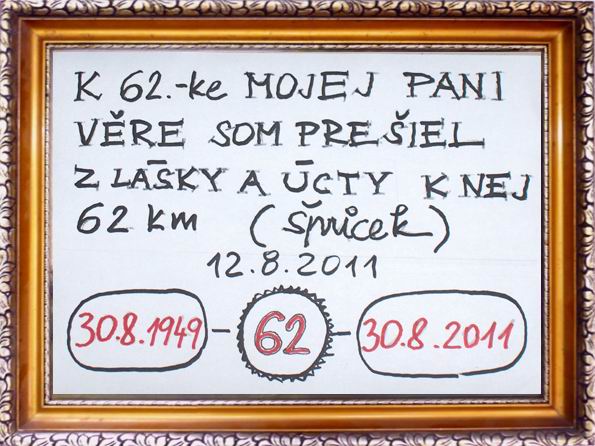 K 62.-ke MOJEJ PANI
VĚRE SOM PREŠIEL
Z LÁSKY A ÚCTY K NEJ
62 km (Špricek)
12.8.2011
30.8.1949 - 62 - 30.8.2011